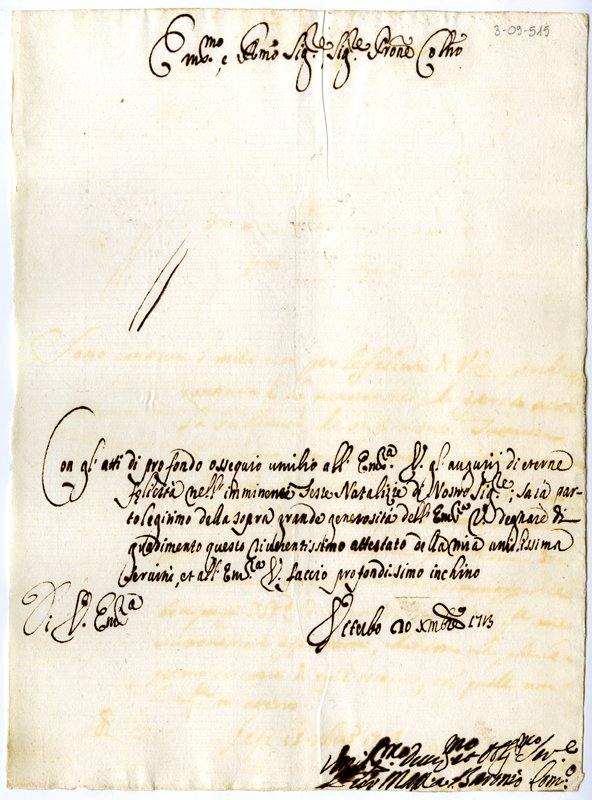 3-09-515
Em.mo e R.mo Sig.re Sig.re Prone Col.mo
Con gl'atti di profondo ossequio umilio all'Em.za V. gl'augurij di eterne
felicità nell'imminenti feste Natalizie di Nostro Sig.re; sarà par-
to legitimo della sopra grande generosità dell'Em.za V. degnare di
gradimento questo riverentissimo attestato della mia umilissima
servitù, et all'Em.za V. faccio profondissimo inchino
Di V. Em.za
Viterbo 20 Xmbre 1713
Umil.mo Devo.mo et Obl.mo Ser.e
Maria Baronio